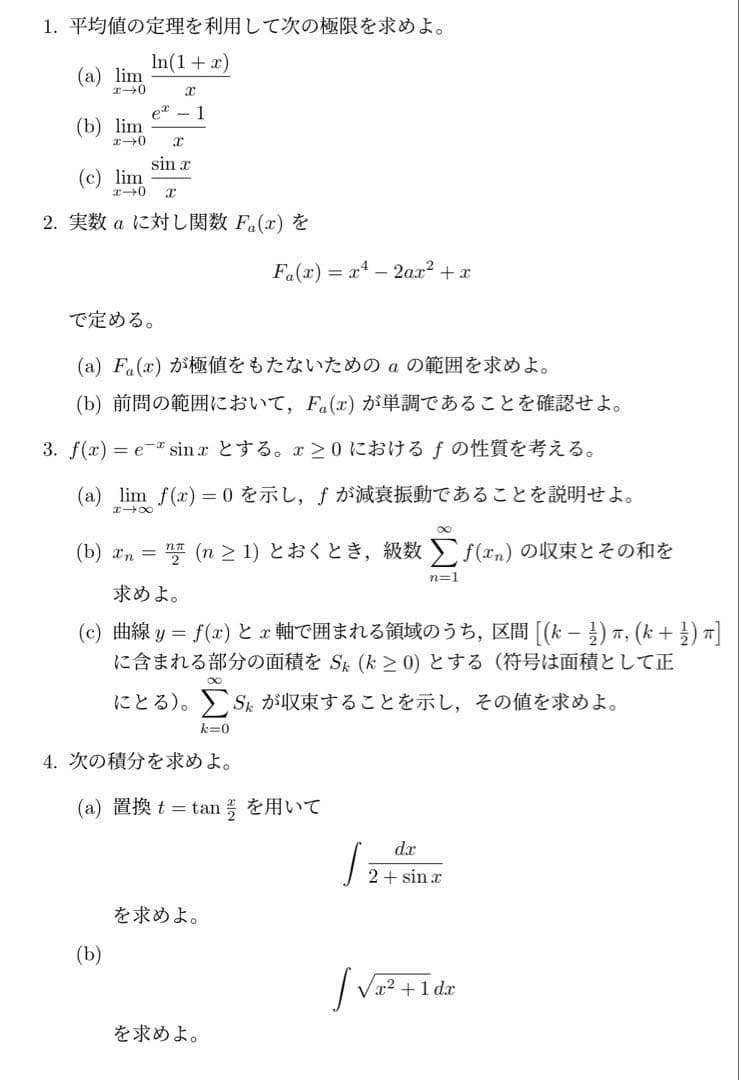 1. 平均値の定理を利用して次の極限を求めよ。
(a) lim_{x→0} ln(1 + x)/x
(b) lim_{x→0} (e^x − 1)/x
(c) lim_{x→0} sin x/x
2. 実数 a に対し関数 F_a(x) を
F_a(x) = x^4 − 2ax^2 + x
で定める。
(a) F_a(x) が極値をもたないための a の範囲を求めよ。
(b) 前問の範囲において，F_a(x) が単調であることを確認せよ。
3. f(x) = e^{−x} sin x とする。x ≥ 0 における f の性質を考える。
(a) lim_{x→∞} f(x) = 0 を示し，f が減衰振動であることを説明せよ。
(b) x_n = nπ/2 (n ≥ 1) とおくとき，級数 ∑_{n=1}^{∞} f(x_n) の収束とその和を
求めよ。
(c) 曲線 y = f(x) と x 軸で囲まれる領域のうち，区間 [(k − 1/2) π, (k + 1/2) π]
に含まれる部分の面積を S_k (k ≥ 0) とする（符号は面積として正
にとる）。∑_{k=0}^{∞} S_k が収束することを示し，その値を求めよ。
4. 次の積分を求めよ。
(a) 置換 t = tan x/2 を用いて
∫ dx/(2 + sin x)
を求めよ。
(b)
∫ √(x^2 + 1) dx
を求めよ。